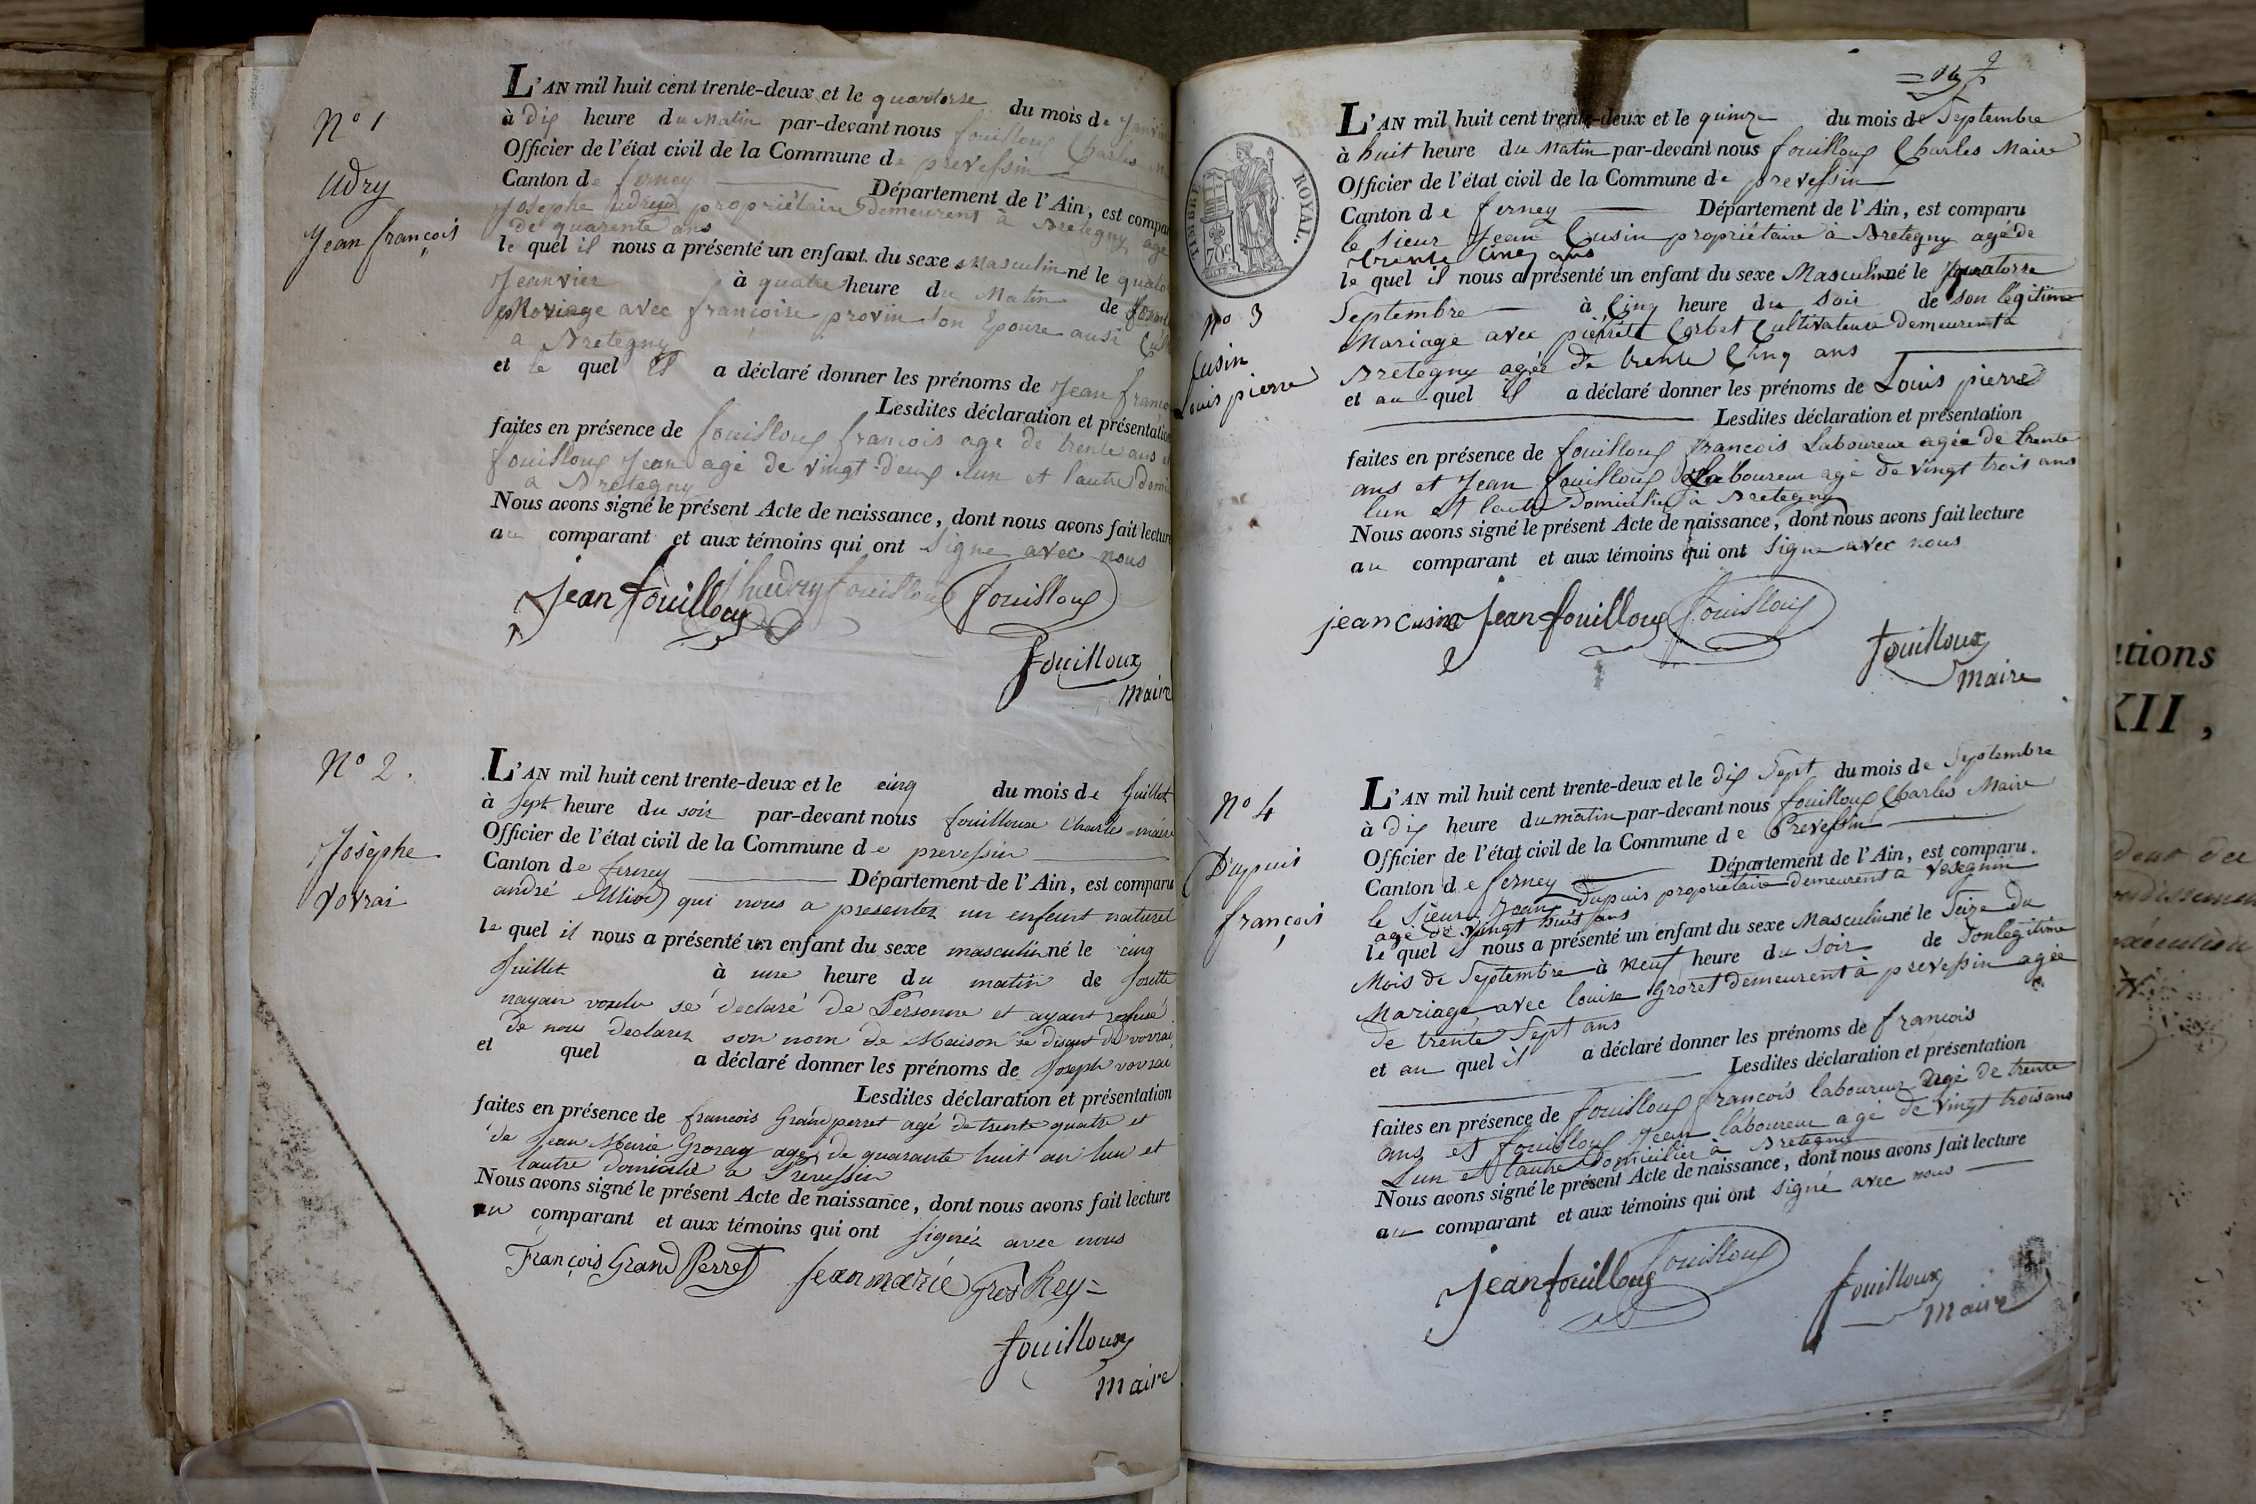 N° 1
Udry
Jean françois
L'AN mil huit cent trente-deux et le quartorse du mois de Janvier
à dix heure du Matin par-devant nous fouilloux Charles
Officier de l'état civil de la Commune de prevessin
Canton de ferney Département de l'Ain, est compar
Josephe udry propriétaire demeurent à Bretegny agé
de quarente ans
le quel il nous a présenté un enfant du sexe Masculin né le quato
Jeanvier à quatre heure du Matin de
Mariage avec francoise provin son Epouse ausi
a Bretegny
et le quel il a déclaré donner les prénoms de Jean franco
Lesdites déclaration et présentation
faites en présence de fouilloux francois agé de trente ans et
fouilloux Jean agé de vingt-deux lun et lautre domi
a Bretegny
Nous avons signé le présent Acte de naissance, dont nous avons fait lecture
au comparant et aux témoins qui ont signé avec nous
Jean fouilloux Jh udry fouilloux fouilloux
fouilloux
maire
N° 2.
Josèphe
vovrai
L'AN mil huit cent trente-deux et le cinq du mois de Juillet
à sept heure du soir par-devant nous fouilloux Charle maire
Officier de l'état civil de la Commune de prevessin
Canton de ferney Département de l'Ain, est comparu
andré qui nous a presenter un enfent naturel
le quel il nous a présenté un enfant du sexe masculin né le cinq
Juillet à une heure du matin de Josette
nayan voulu se declaré de Personne et ayant refusé
de nous declarer son nom de Maison se disant de vovrai
et quel a déclaré donner les prénoms de Joseph vovrai
Lesdites déclaration et présentation
faites en présence de francois Grandperret agé de trente quatre et
de Jean Marie Grosrey agé de quarante huit an lun et
lautre domicilié a Prevessin
Nous avons signé le présent Acte de naissance, dont nous avons fait lecture
au comparant et aux témoins qui ont signér avec nous
François Grand Perret Jean marie Gros Rey
fouilloux
maire
9
TIMBRE ROYAL.
70c
N° 3
Cusin
Louis pierre
L'AN mil huit cent trente-deux et le quinze du mois de Septembre
à huit heure du Matin par-devant nous fouilloux Charles Maire
Officier de l'état civil de la Commune de prevessin
Canton de ferney Département de l'Ain, est comparu
le sieur Jean Cusin propriétaire à Bretegny agé de
trente Cinq ans
le quel il nous a présenté un enfant du sexe Masculin né le quatorse
Septembre à Cinq heure du soir de son légitime
Mariage avec pierrete Corbet Cultivateur demeurent a
Bretegny agée de trente Cinq ans
et au quel il a déclaré donner les prénoms de Louis pierre
Lesdites déclaration et présentation
faites en présence de fouilloux francois Laboureur agée de trente
ans et Jean fouilloux Laboureur agé de vingt trois ans
lun et lautre Domicilié à Bretegny
Nous avons signé le présent Acte de naissance, dont nous avons fait lecture
au comparant et aux témoins qui ont signé avec nous
jean Cusin Jean fouilloux fouilloux
fouilloux
maire
N° 4
Dupuis
françois
L'AN mil huit cent trente-deux et le dix sept du mois de Septembre
à dix heure du matin par-devant nous fouilloux Charles Maire
Officier de l'état civil de la Commune de Prevessin
Canton de ferney Département de l'Ain, est comparu.
le sieur Jean Dupuis propriétaire demeurent a Vesegnin
agé de vingt huit ans
le quel il nous a présenté un enfant du sexe Masculin né le seize du
Mois de Septembre à neuf heure du soir de son légitime
Mariage avec louise Groret demeurent à prevessin agée
de trente sept ans
et au quel il a déclaré donner les prénoms de francois
Lesdites déclaration et présentation
faites en présence de fouilloux francois laboureur agé de trente
ans et fouilloux Jean laboureur agé de vingt trois ans
Lun et lautre Domicilier à Bretegny
Nous avons signé le présent Acte de naissance, dont nous avons fait lecture
au comparant et aux témoins qui ont signé avec nous
Jean fouilloux fouilloux
fouilloux
maire
ations
XII,